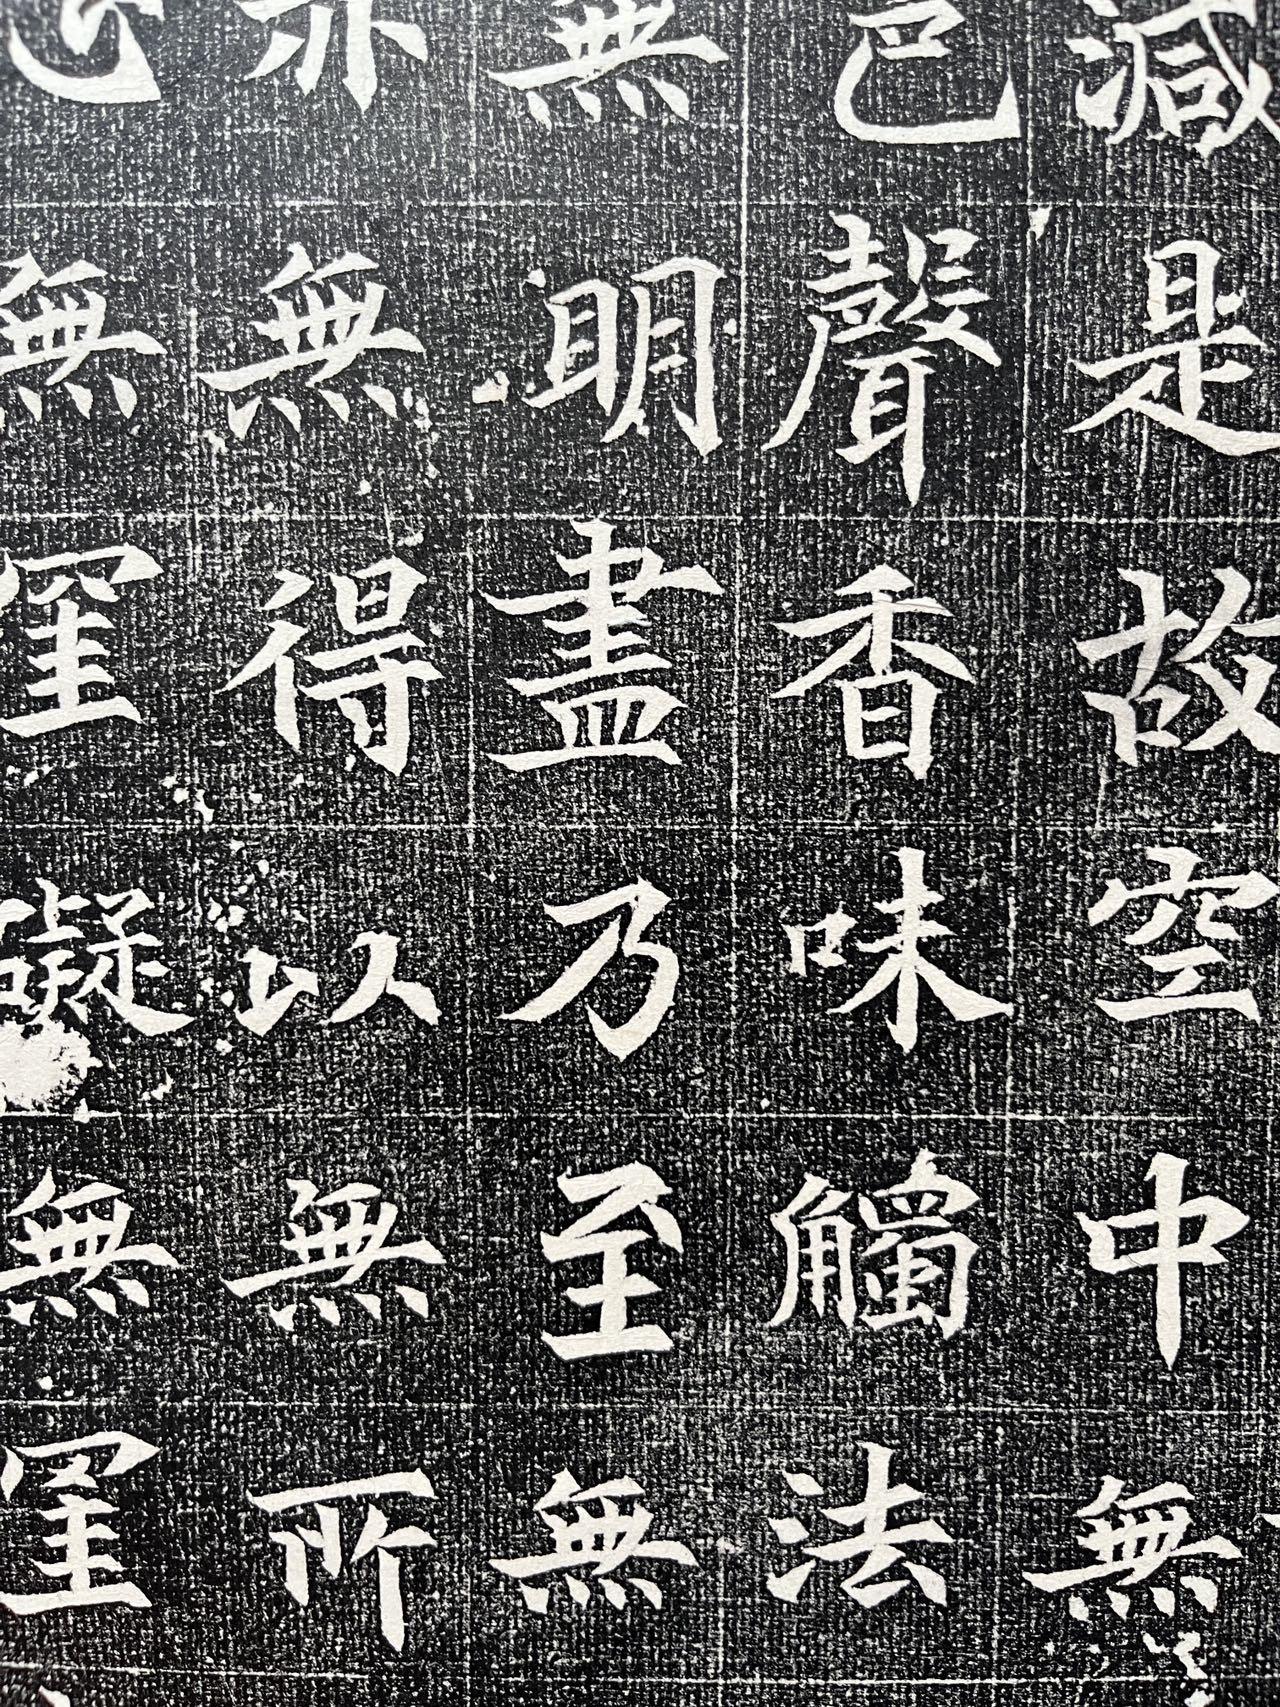 減是故空中無
色聲香味觸法
無明盡乃至無
亦無得以無所
心無罣礙無罣